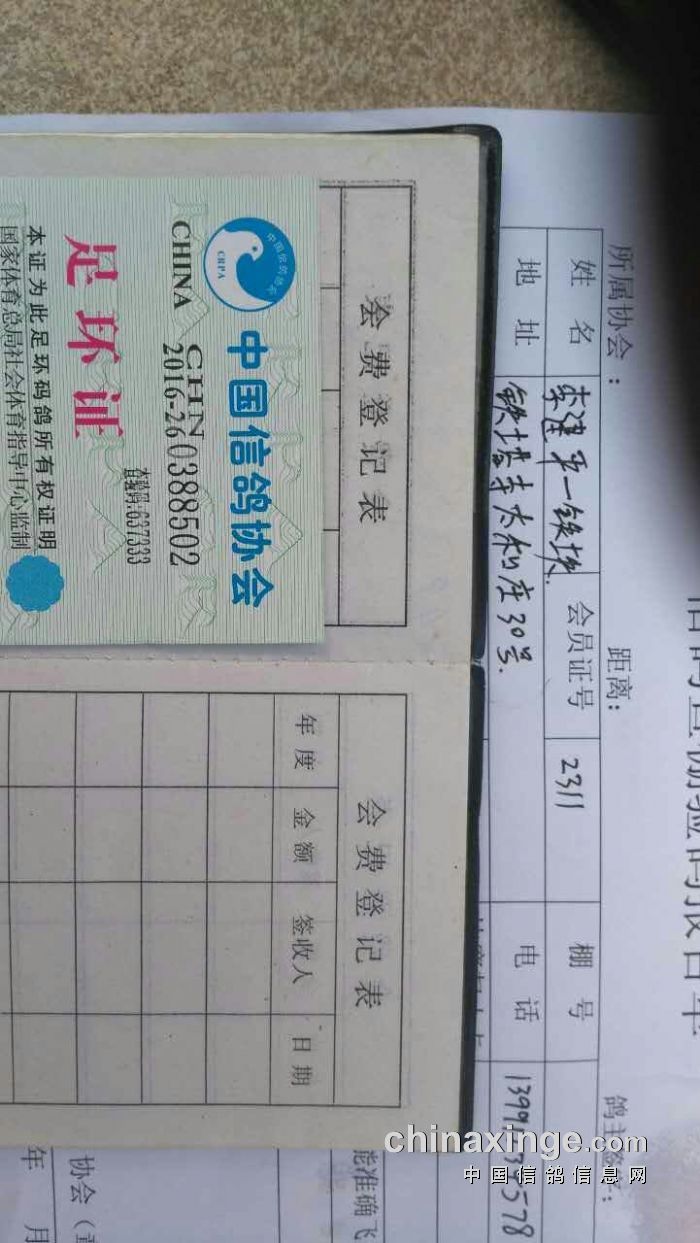 所属协会：
距离：
姓名
李建平一铁块
会员证号
2311
棚号
地址
铁塔寺太和庄30号.
电话
会费登记表
中国信鸽协会
CRPA
CHINA
CHN
2016-26 0388502
637333
足环证
本证为此足环码鸽所有权证明
国家体育总局社会体育指导中心监制
会费登记表
年度
金额
签收人
日期
能准确飞
协会（
年 月
chinaxinge.com
中国信鸽信息网